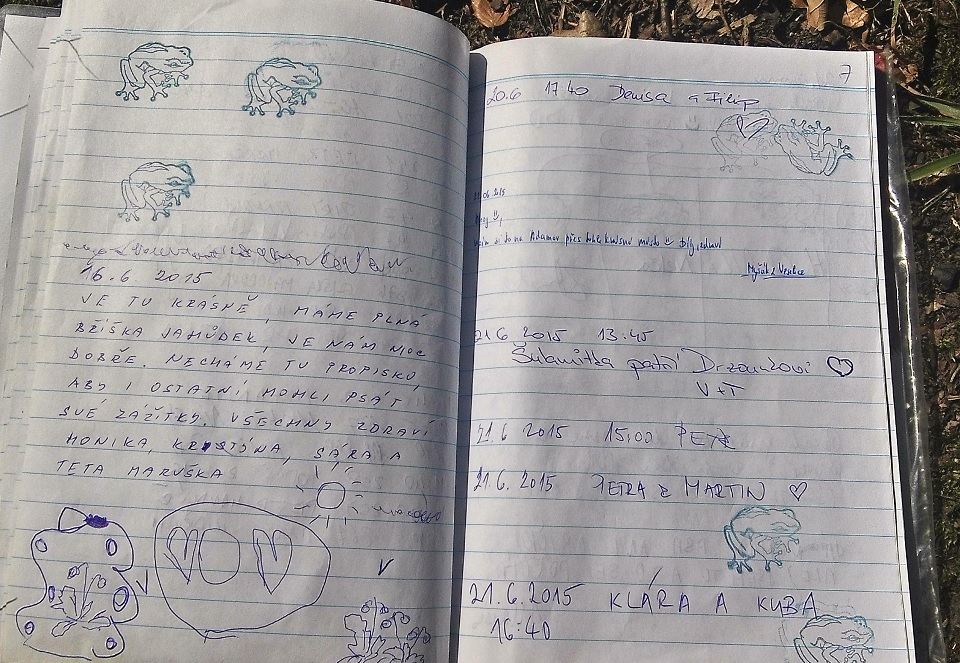 16.6 2015
JE TU KRÁSNĚ, MÁME PLNÁ
BŘÍŠKA JAHŮDEK, JE NÁM MOC
DOBŘE. NECHÁME TU PROPISKU,
ABY I OSTATNÍ MOHLI PSÁT
SVÉ ZÁŽITKY. VŠECHNY ZDRAVÍ
MONIKA, KRISTÝNA, SÁRA A
TETA MARUŠKA
7
20.6 17 40 Denisa a Filip
06. 2015
na Adamov přes
21.6 2015 13:45
Šulamitka patří Drzounovi
V+T
21.6 2015 15:00 PETR
21.6. 2015 PETRA & MARTIN
21.6.2015 KLÁRA A KUBA
16:40